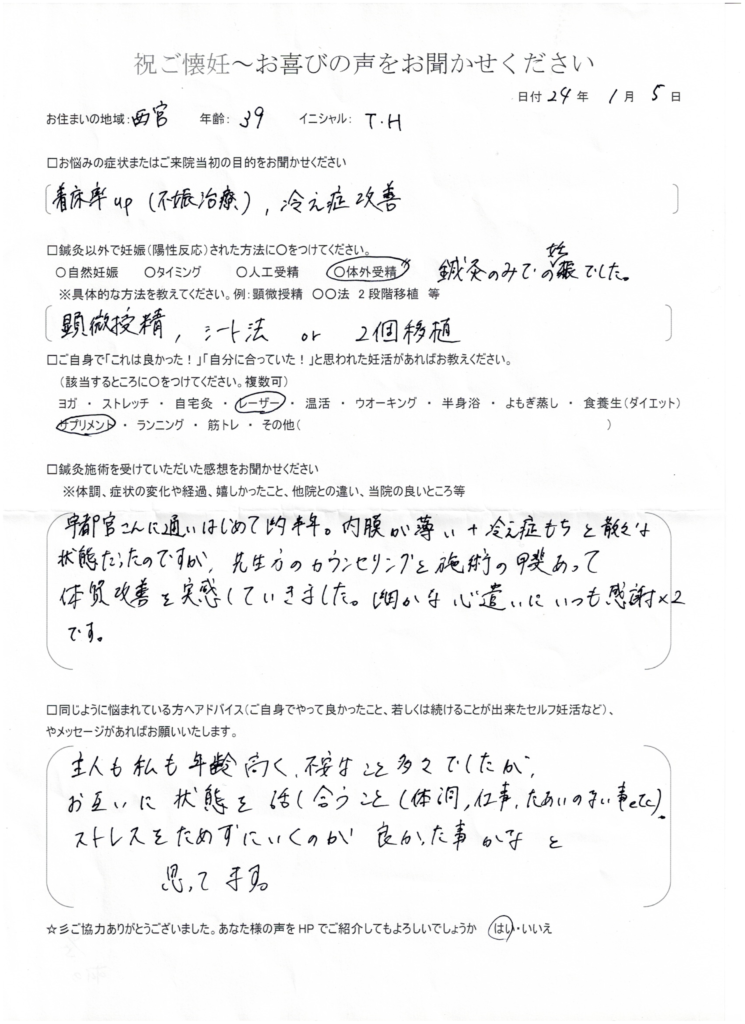 祝ご懐妊～お喜びの声をお聞かせください
日付 24 年 1 月 5 日
お住まいの地域: 西宮 年齢: 39 イニシャル: T.H
□お悩みの症状またはご来院当初の目的をお聞かせください
着床率up (不妊治療), 冷え症改善
□鍼灸以外で妊娠(陽性反応)された方法に○をつけてください。
○自然妊娠 ○タイミング ○人工受精 ○体外受精 鍼灸のみでの妊娠でした。
※具体的な方法を教えてください。例:顕微授精 ○○法 2段階移植 等
顕微授精, シート法 or 2個移植
□ご自身で「これは良かった！」「自分に合っていた！」と思われた妊活があればお教えください。
(該当するところに○をつけてください。複数可)
ヨガ ・ ストレッチ ・ 自宅灸 ・ レーザー ・ 温活 ・ ウオーキング ・ 半身浴 ・ よもぎ蒸し ・ 食養生(ダイエット)
サプリメント ・ ランニング ・ 筋トレ ・ その他( )
□鍼灸施術を受けていただいた感想をお聞かせください
※体調、症状の変化や経過、嬉しかったこと、他院との違い、当院の良いところ等
宇都宮さんに通いはじめて約半年。内膜が薄い+冷え症もちと散々な
状態だったのですが、先生方のカウンセリングと施術の甲斐あって
体質改善を実感していきました。細かな心遣いにいつも感謝×2
です。
□同じように悩まれている方へアドバイス(ご自身でやって良かったこと、若しくは続けることが出来たセルフ妊活など)、
やメッセージがあればお願いいたします。
主人も私も年齢高く、不安なこと多々でしたが、
お互いに状態を話し合うこと(体調,仕事,たあいのない事etc)、
ストレスをためずにいくのが良かった事かなと
思ってます。
☆彡ご協力ありがとうございました。あなた様の声をHPでご紹介してもよろしいでしょうか はい・いいえ